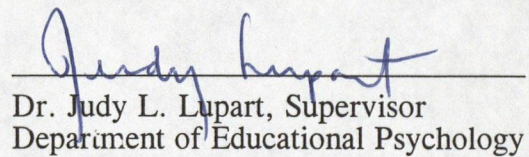 Judy Lupart
Dr. Judy L. Lupart, Supervisor
Department of Educational Psychology